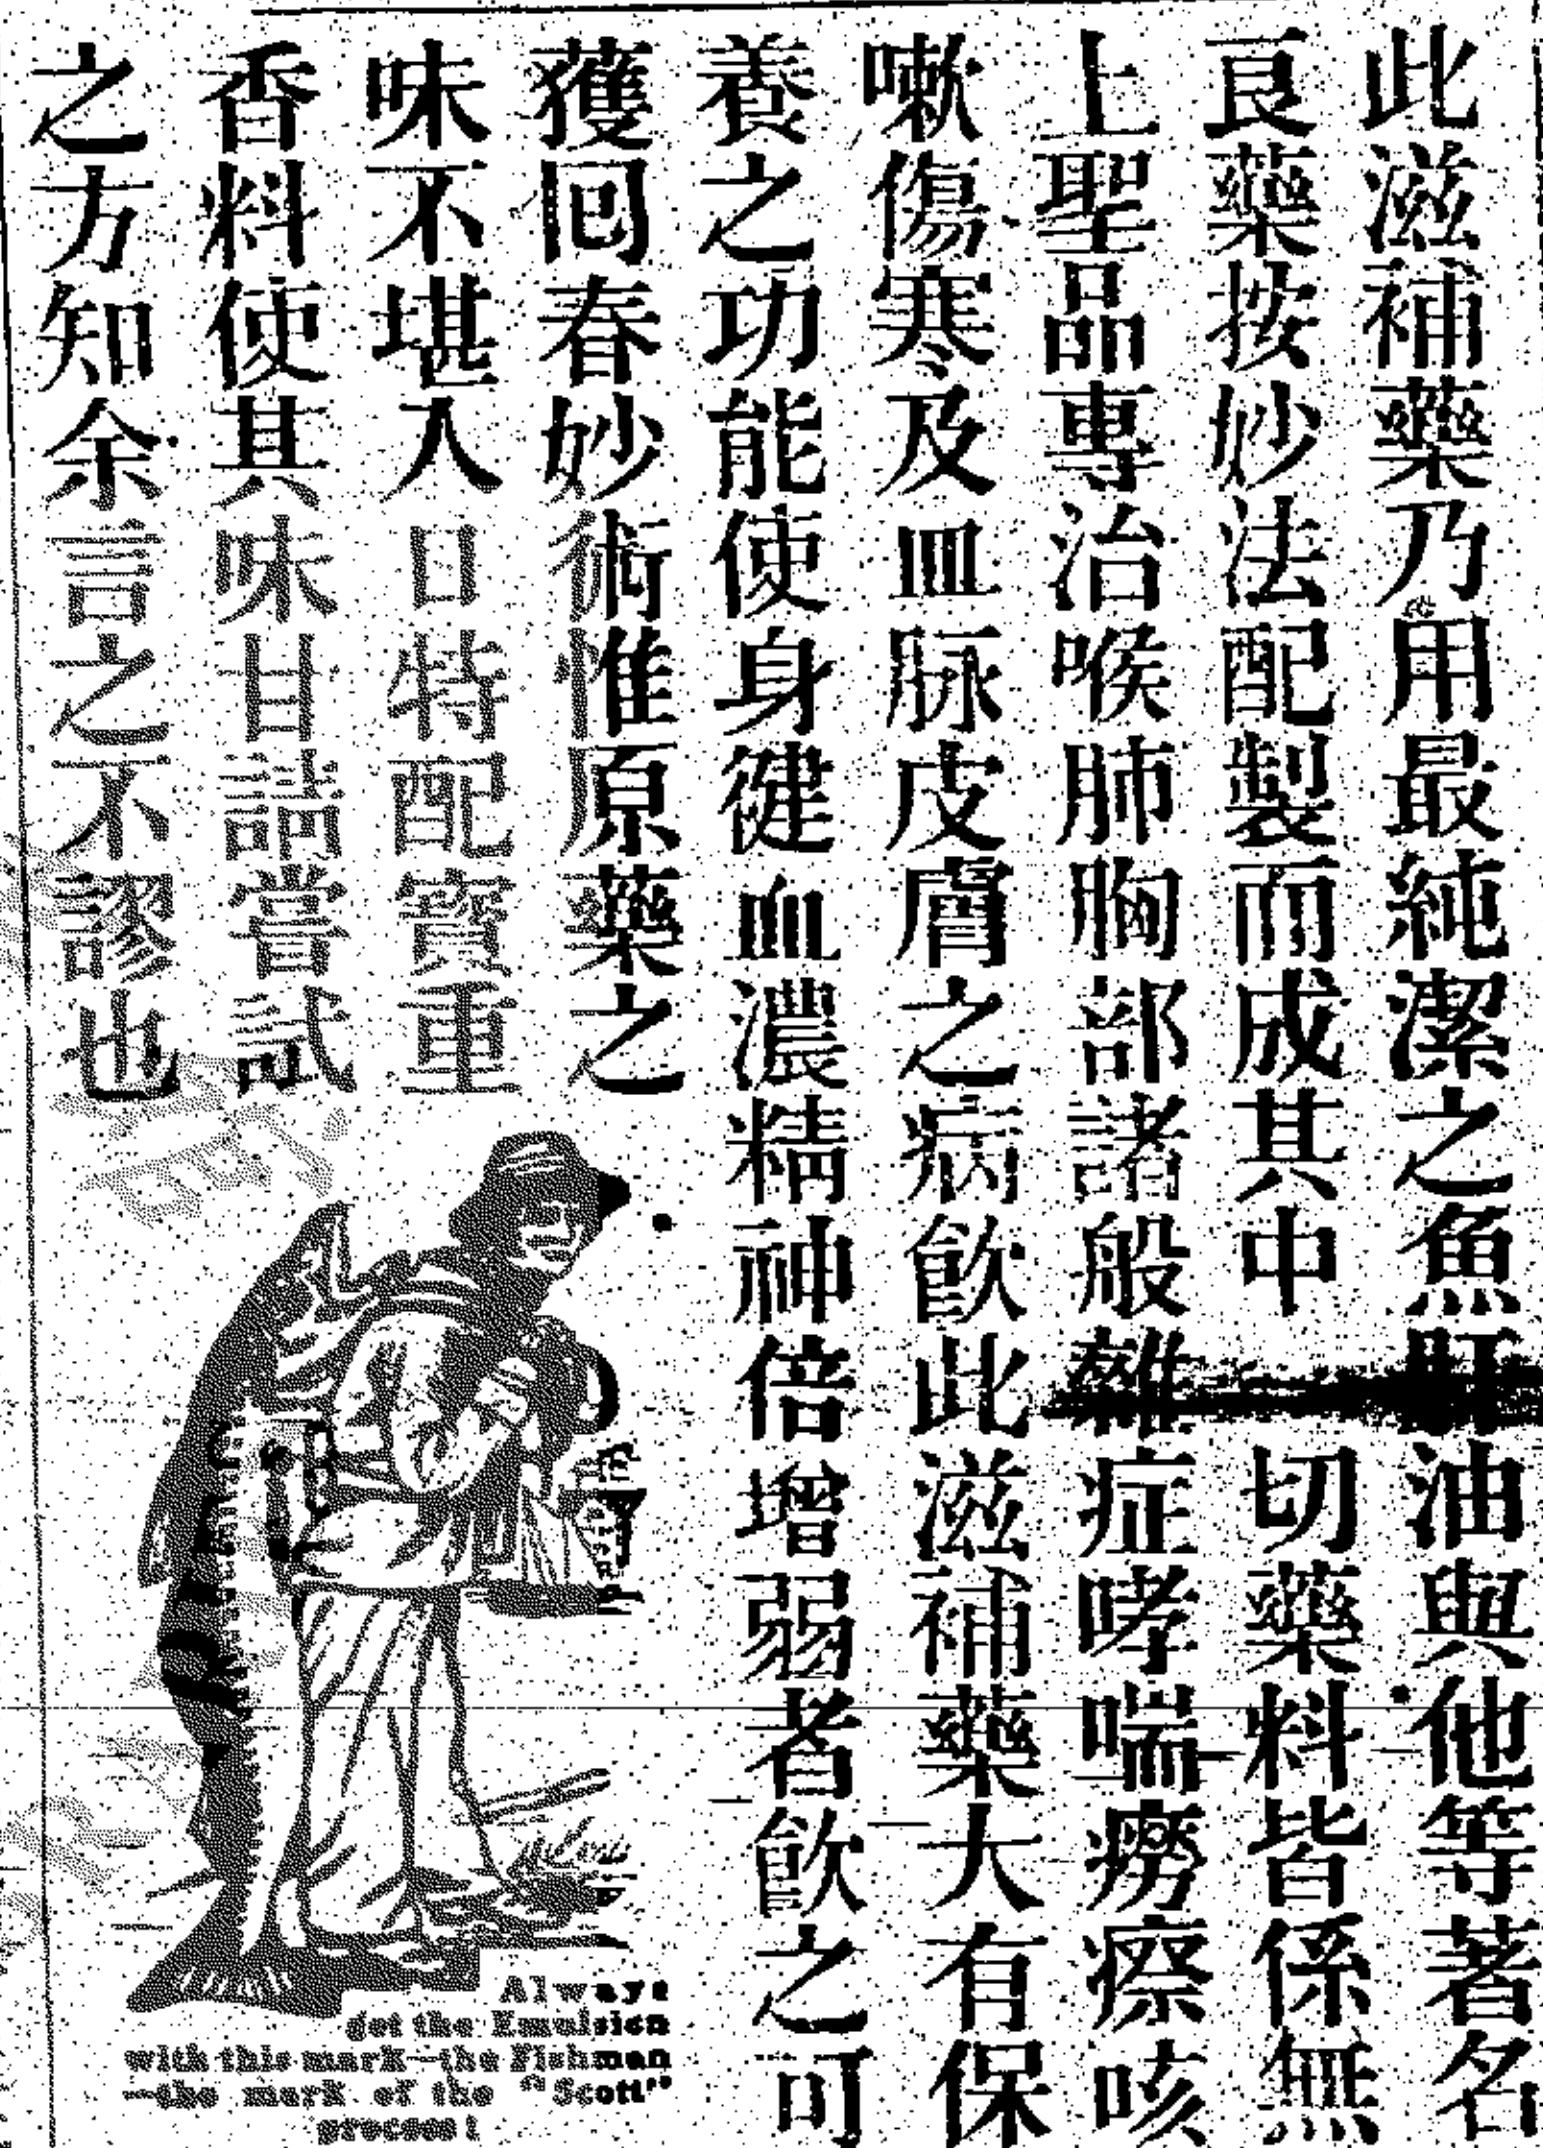 此滋補藥乃用最純潔之魚肝油與他等著名
良藥按妙法配製而成其中切藥料皆係無
上聖品專治喉肺胸部諸般雜症哮喘癆瘵咳
嗽傷寒及血脉皮膚之病飲此滋補藥大有保
養之功能使身健血濃精神倍增弱者飲之可
獲回春妙術惟原藥之
味不堪入口特配寶重
香料使其味甘請嘗試
之方知余言之不謬也
Always
get the Emulsion
with this mark—the Fishman
—the mark of the "Scott"
process!